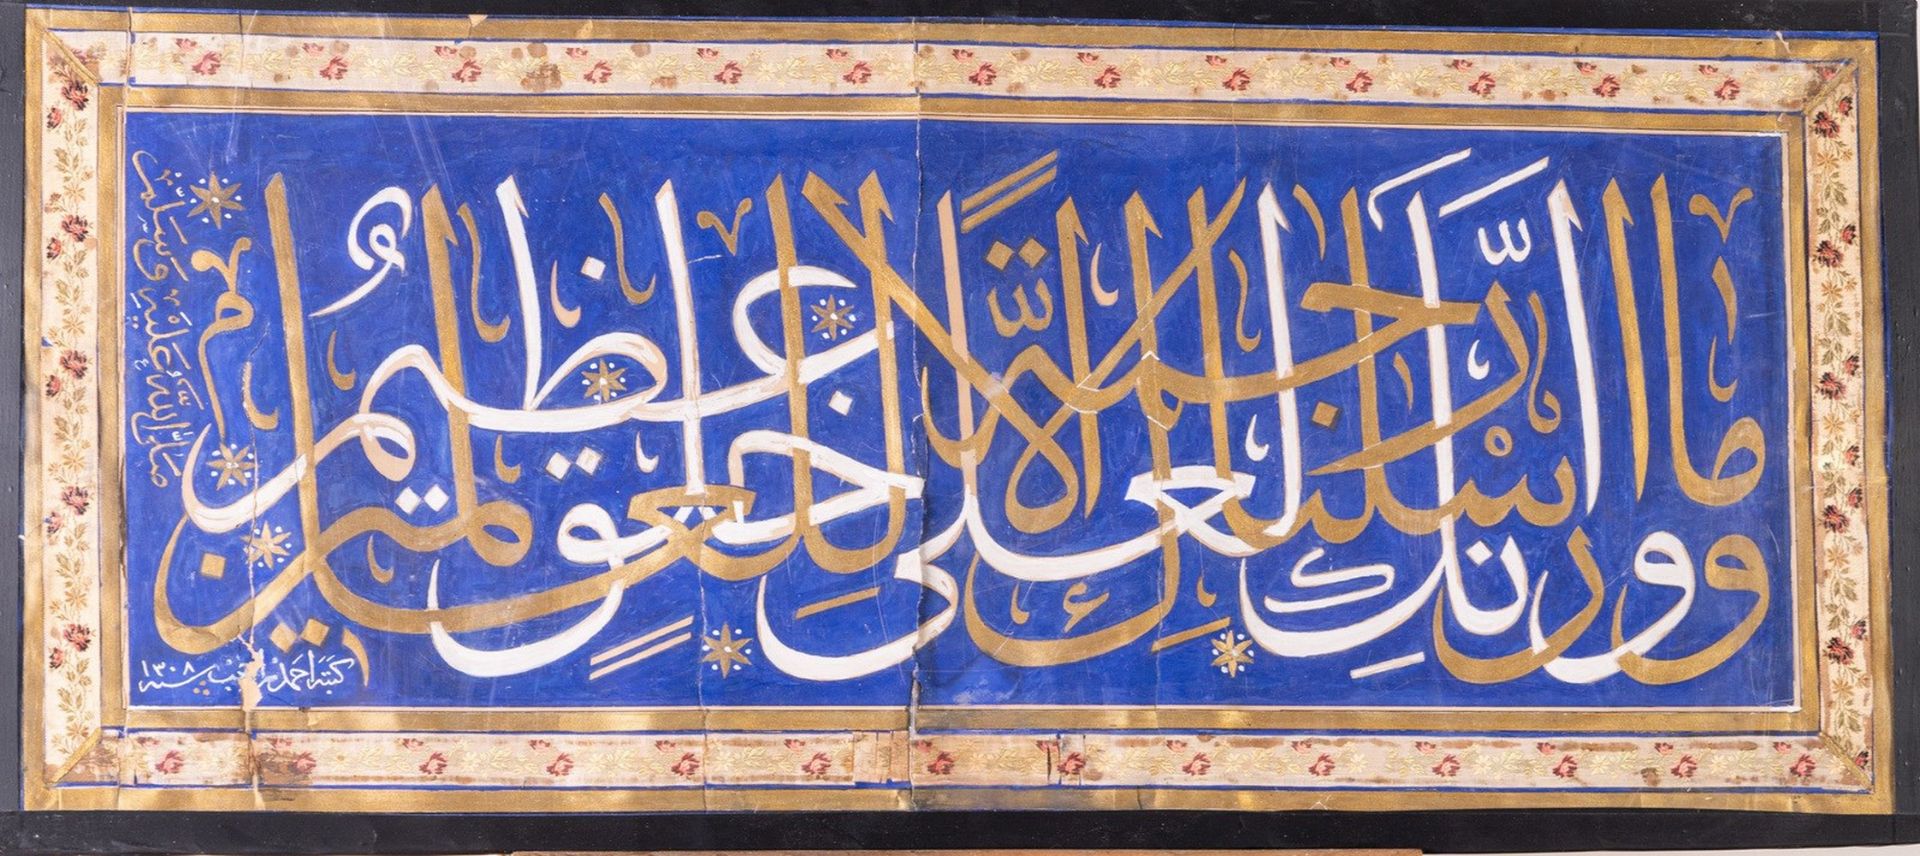 وما ارسلناك الا رحمة للعالمين
وانك لعلى خلق عظيم
صلى الله عليه وسلم
كتبه احمد سنه ١٣٠٨